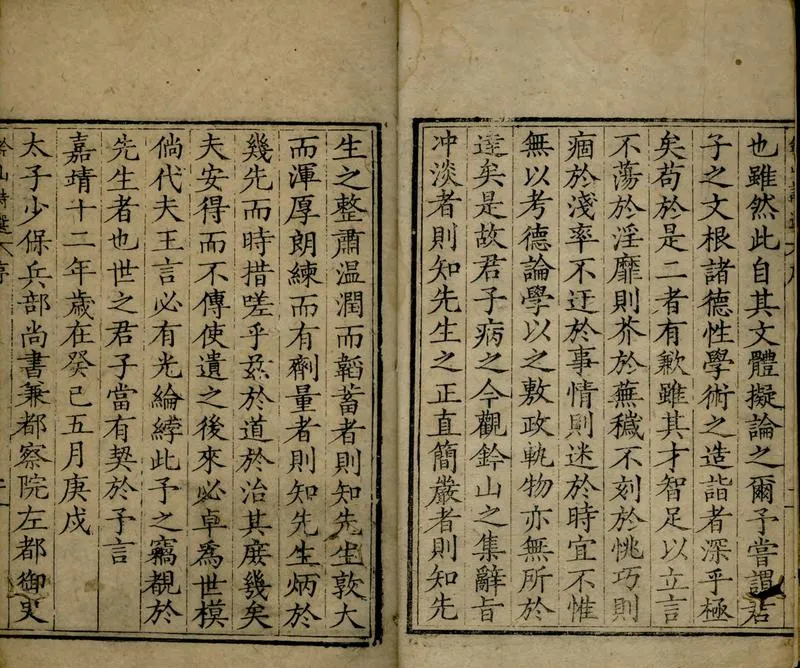 也雖然此自其文體擬論之爾予嘗謂君
子之文根諸德性學術之造詣者深乎極
矣苟於是二者有歉雖其才智足以立言
不蕩於淫靡則芥於蕪穢不刻於恌巧則
痼於淺率不迂於事情則迷於時宜不惟
無以考德論學以之敷政軌物亦無所於
逹矣是故君子病之今觀鈐山之集辭旨
冲淡者則知先生之正直簡嚴者則知先
生之整肅温潤而韜蓄者則知先生敦大
而渾厚朗練而有劑量者則知先生炳於
幾先而時措嗟乎兹於道於治其庻幾矣
夫安得而不傳使遺之後來必卓爲世模
倘代夫王言必有光綸綍此予之竊覩於
先生者也世之君子當有契於予言
嘉靖十二年歲在癸巳五月庚戌
太子少保兵部尚書兼都察院左都御史
鈐山詩選 序